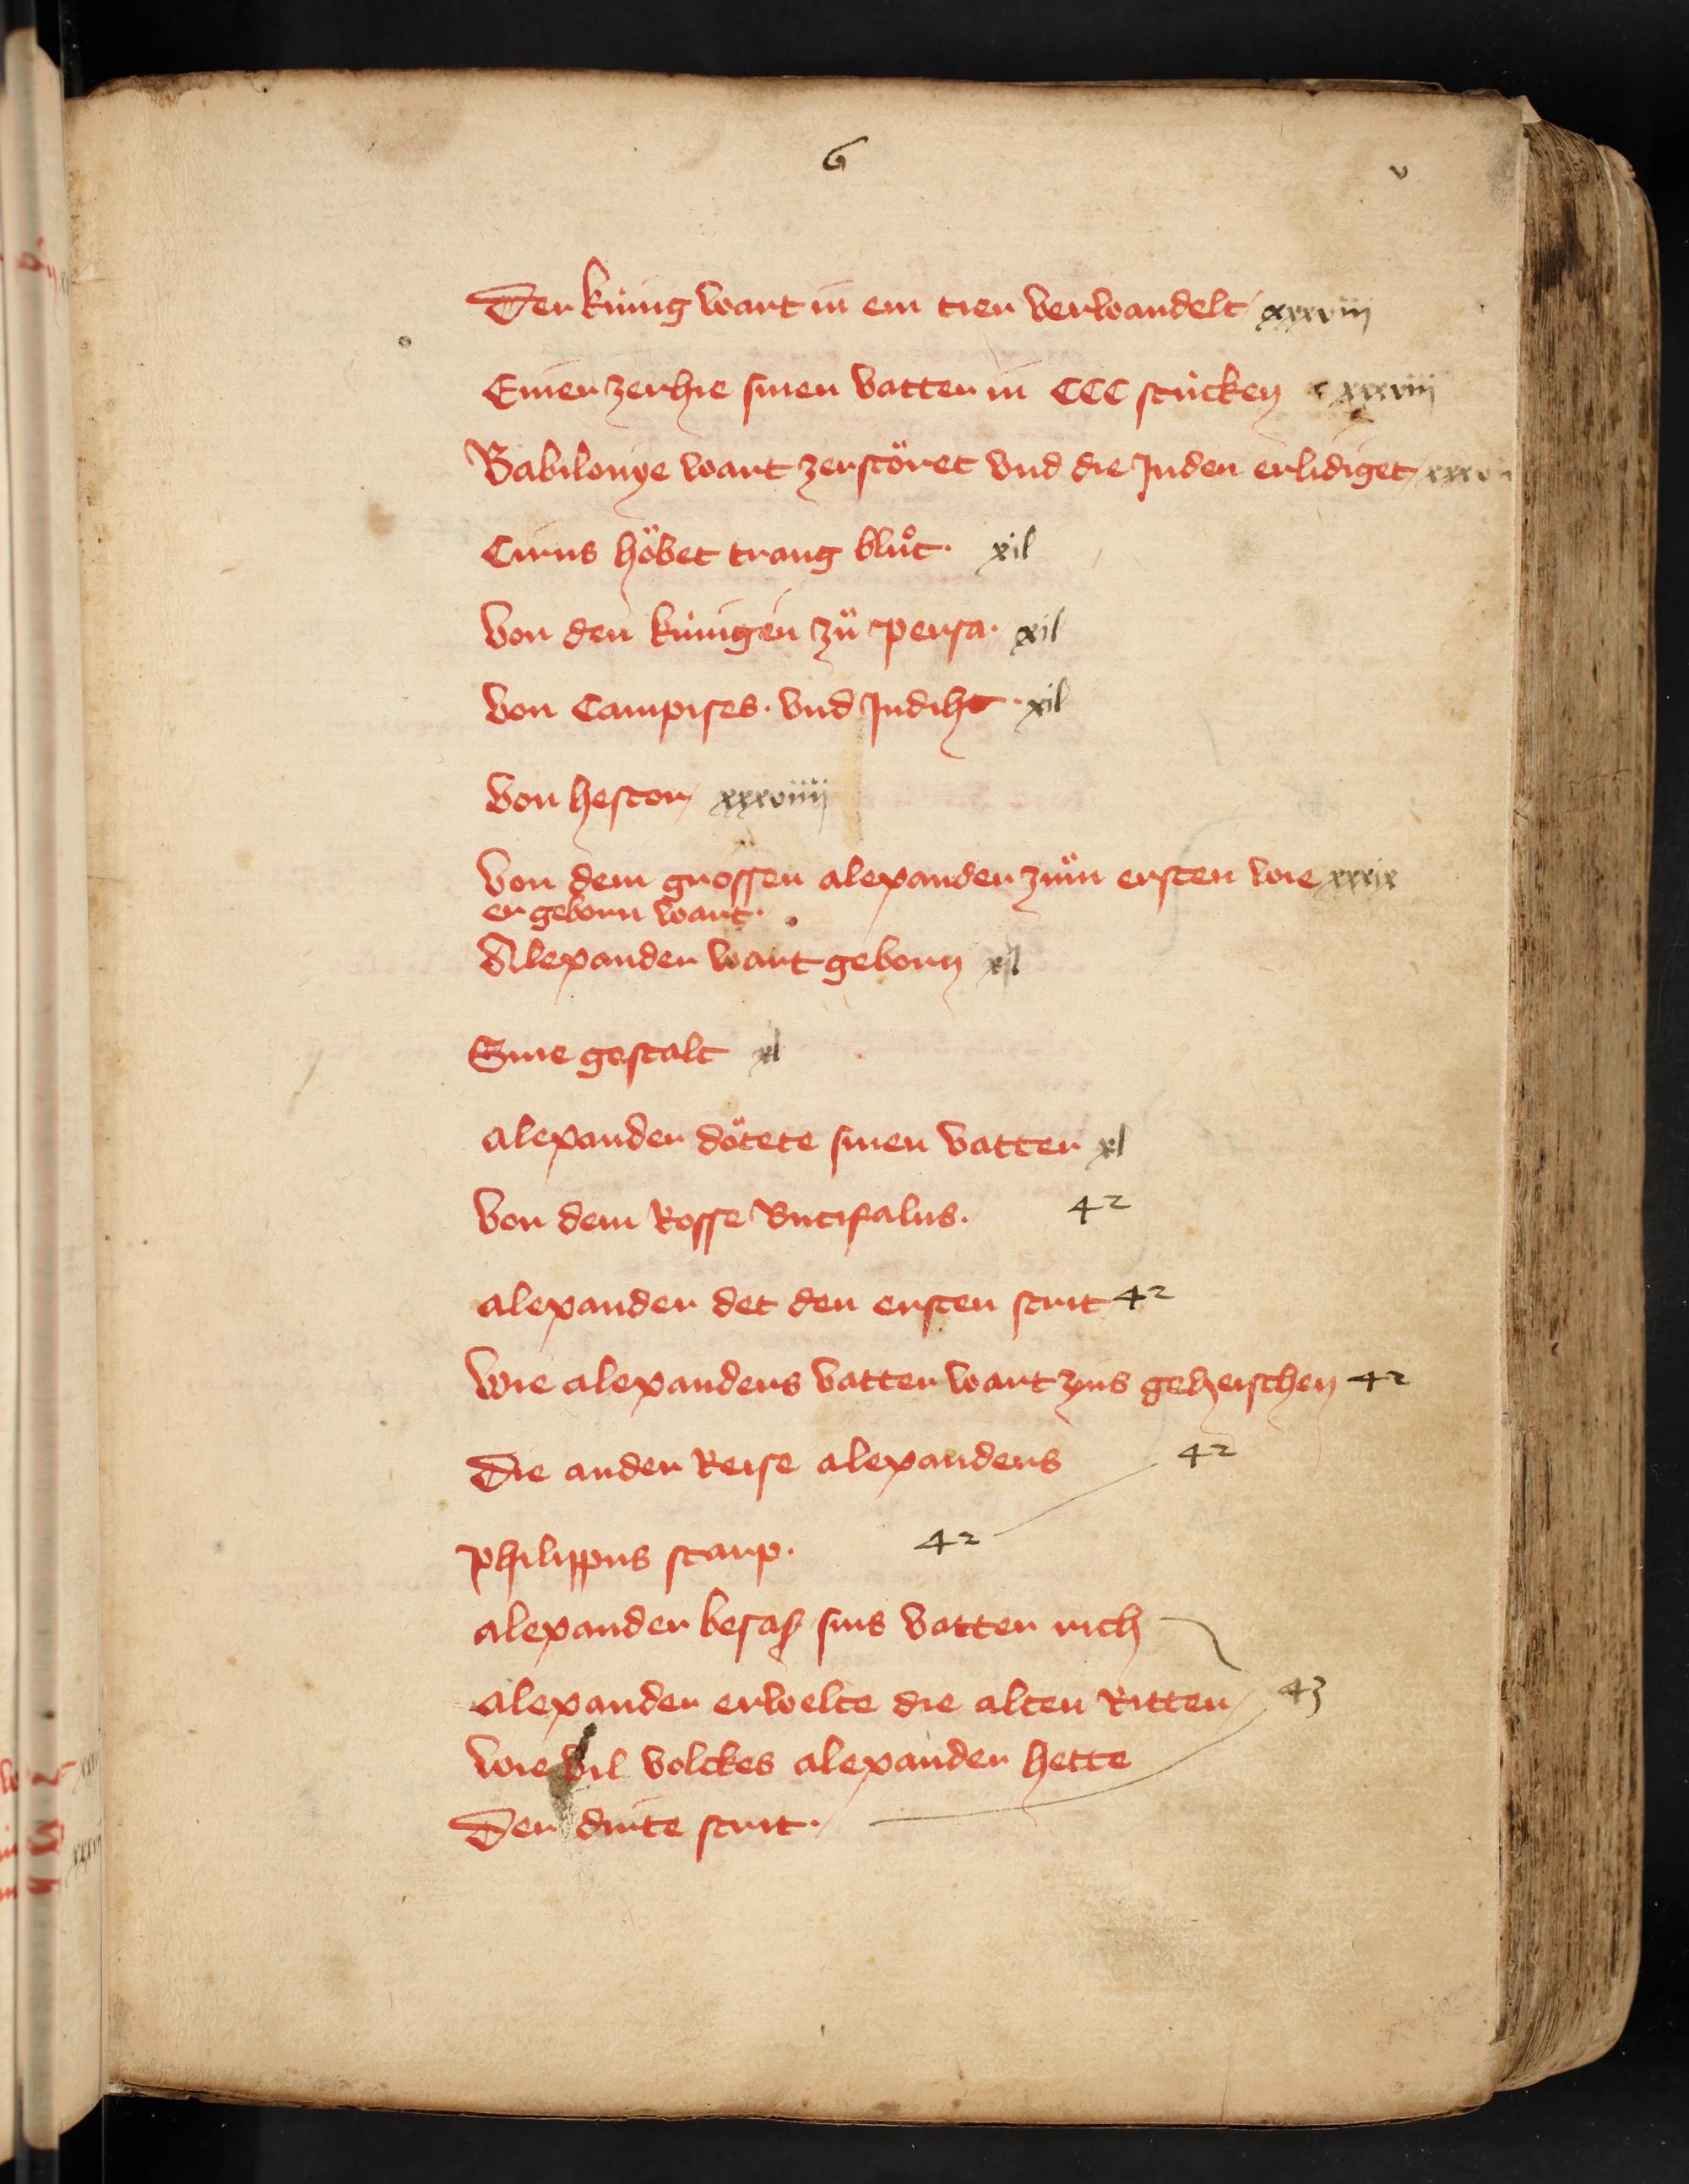 6 v
Der kúnig wart in ein tier verwandelt xxxviij
Einer zerhie sinen vatter in CCC stúcken xxxviij
Babilonye wart zerstöret vnd die Juden erlidiget xxxv
Cirus höbet trang blůt. xil
Von den kúnigen zů Persa. xil
Von Campises. vnd Judiht. xil
Von hester xxxviiij
Von dem grossen alexander zům ersten wie xxxix
er geborn wart.
Alexander wart geborn xl
Sine gestalt xl
alexander dötete sinen vatter xl
Von dem Rosse Bucifalus. 42
alexander det den ersten strit 42
Wie alexanders vatter wart zins geheischen 42
Die ander Reise alexanders 42
Philippus starp. 42
alexander besaß sins vatter rich
alexander erwelte die alten Ritter 43
Wie vil volckes alexander hette
Der dirte strit.